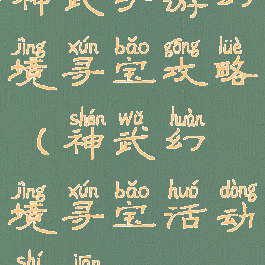 jìng xún bǎo gōng lüè
境寻宝攻略
shén wǔ huàn
（神武幻
jìng xún bǎo huó dòng
境寻宝活动
shí jiān